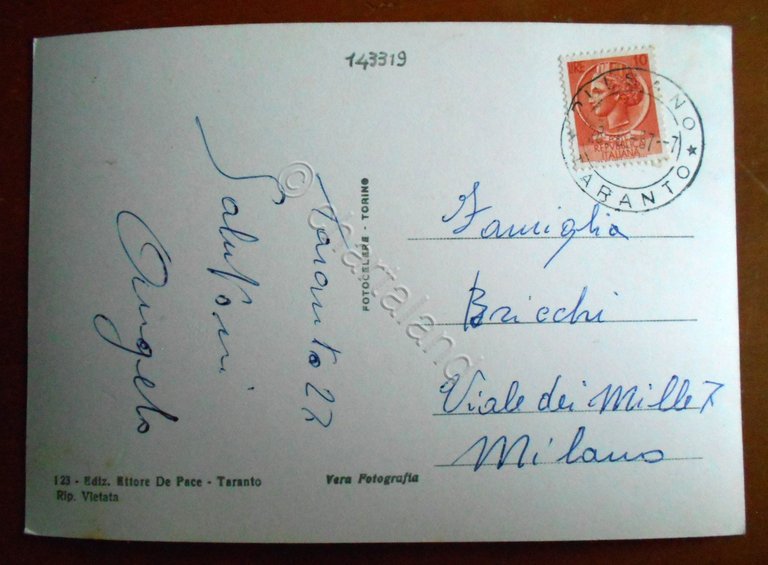 143319
LIRE 10
REPUBBLICA
ITALIANA
TARANTO
Taranto 27
Saluti
Angelo
FOTOCELERE - TORINO
Famiglia
Bricchi
Viale dei Mille 7
Milano
123 - Ediz. Ettore De Pace - Taranto
Rip. Vietata
Vera Fotografia